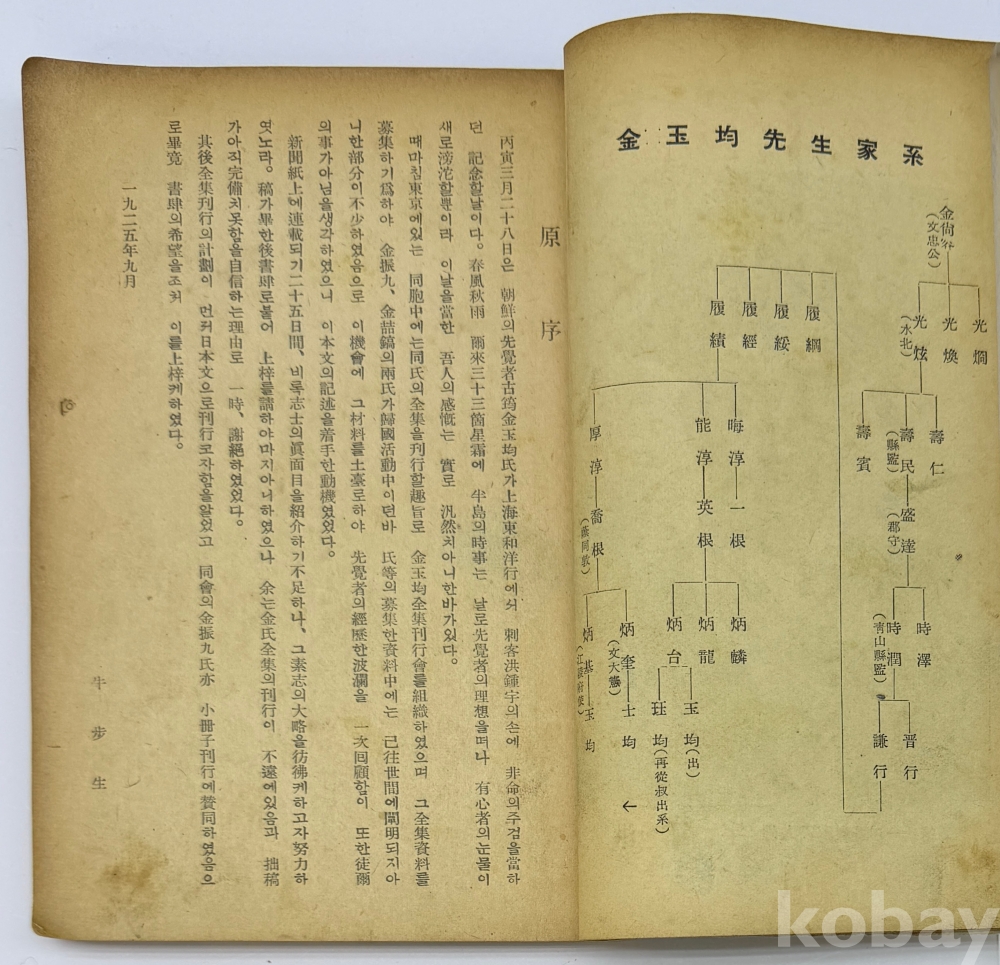 金玉均先生家系
金尙容
(文忠公)
光炫
(水北)
光煥
光烱
壽賓
壽民
(縣監)
壽仁
盛達
(郡守)
時潤
(靑山縣監)
時澤
謙行
晋行
履績
履經
履綏
履綱
厚淳
能淳
晦淳
喬根
英根
一根
炳基
炳奎
(文大憲)
炳台
炳龍
炳麟
玉均
士均
玨均(再從叔出系)
玉均(出)
原序
丙寅三月二十八日은 朝鮮의先覺者古筠金玉均氏가上海東和洋行에서 刺客洪鍾宇의손에 非命의주검을當하
던 記念할날이다。春風秋雨 爾來三十三箇星霜에 半島의時事는 날로先覺者의理想을떠나 有心者의눈물이
새로滂沱할뿐이라 이날을當한 吾人의感慨는 實로 汎然치아니한바가있다。
때마침東京에있는 同胞中에는同氏의全集을刊行할趣旨로 金玉均全集刊行會를組織하였으며 그全集資料를
募集하기爲하야 金振九、金喆鎬의兩氏가歸國活動中이던바 氏等의募集한資料中에는 己往世間에闡明되지아
니한部分이不少하였음으로 이機會에 그材料를土臺로하야 先覺者의經歷한波瀾을 一次回顧함이 또한徒爾
의事가아님을생각하였으니 이本文의記述을着手한動機였었다。
新聞紙上에連載되기二十五日間、비록志士의眞面目을紹介하기不足하나、그素志의大略을彷彿케하고자努力하
엿노라。稿가畢한後書肆로붙어 上梓를請하야마지아니하였으나 余는金氏全集의刊行이 不遠에있음과 拙稿
가아직完備치못함을自信하는理由로 一時、謝絕하였었다。
其後全集刊行의計劃이 먼저日本文으로刊行코자함을알었고 同會의金振九氏亦 小冊子刊行에賛同하였음으
로畢竟 書肆의希望을조처 이를上梓케하였다。
一九二五年九月
牛步生
kobay